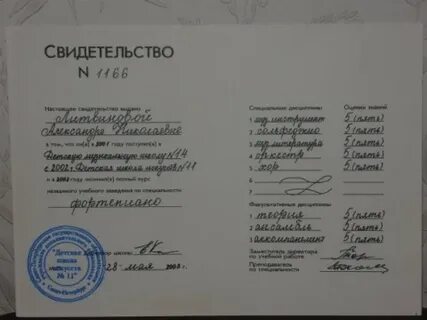 СВИДЕТЕЛЬСТВО
N 1166
Настоящее свидетельство выдано
Литвиновой
Александре Николаевне
в том, что он(а) в году поступил(а) в
Детскую музыкальную школу №14
с 2002г. Детская школа искусств №11
и в 2008 окончил(а) полный курс
названного учебного заведения по специальности
фортепиано
Директор школы
28 мая 2008 г.
"Детская
школа
искусств
№ 11"
Санкт-Петербург
Специальные дисциплины Оценки знаний
1 муз. инструмент 5 (пять)
2 сольфеджио 5 (пять)
3 муз. литература 5 (пять)
4 оркестр 5 (пять)
5 хор 5 (пять)
6
7
Факультативные дисциплины
1 теория 5 (пять)
2 ансамбль 5 (пять)
3 аккомпанемент 5 (пять)
Заместитель директора
по учебной работе
Преподаватель
по специальности